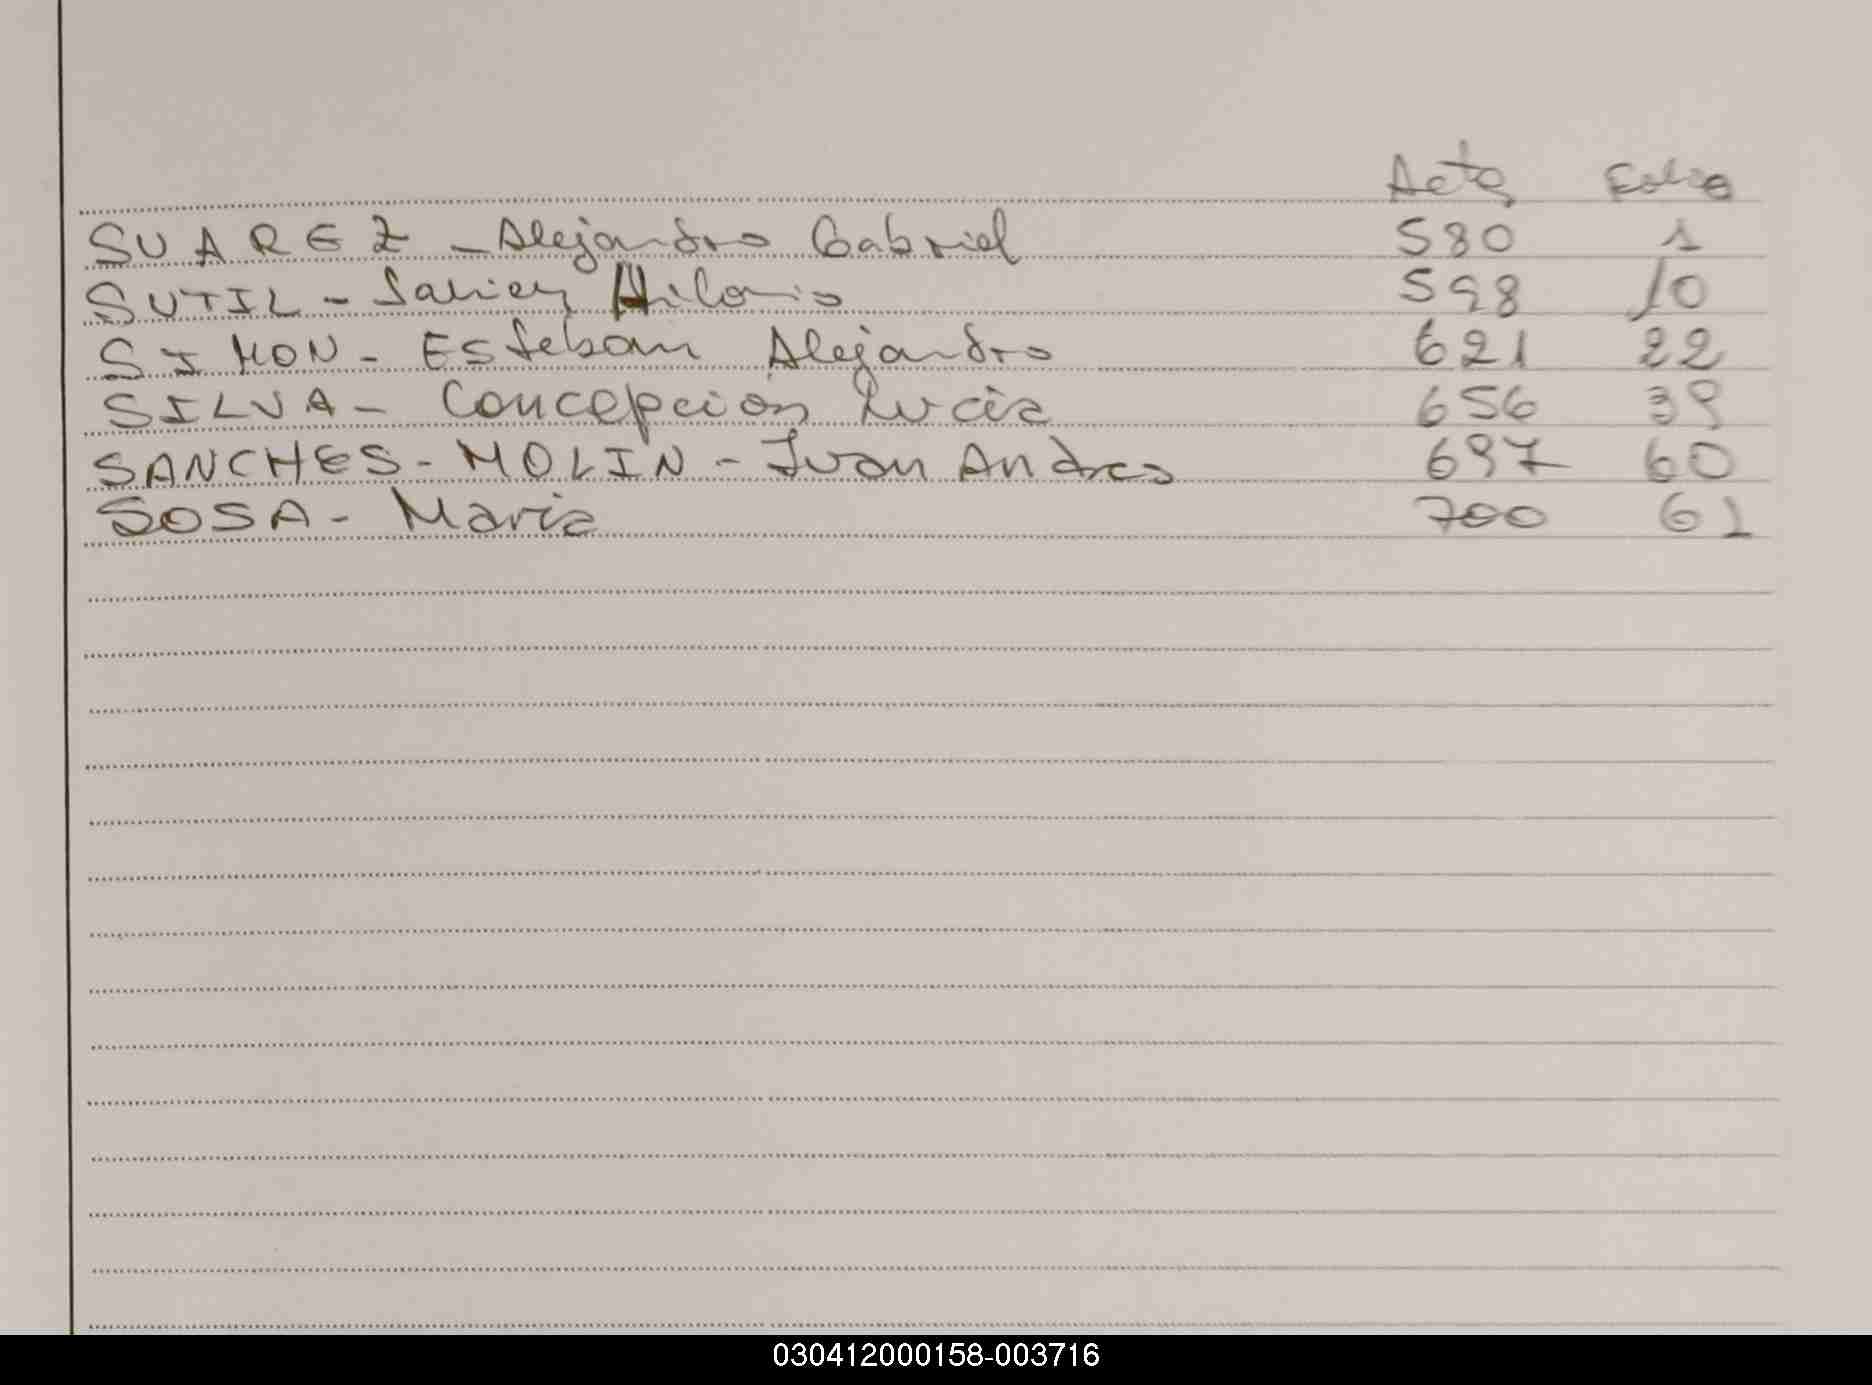 Acta Folio
SUAREZ - Alejandro Gabriel 580 1
SUTIL - Hilario 598 10
SIMON - Esteban Alejandro 621 22
SILVA - Concepción Lucia 656 39
SANCHES - MOLIN - Juan Andres 697 60
SOSA - Maria 700 61
030412000158-003716